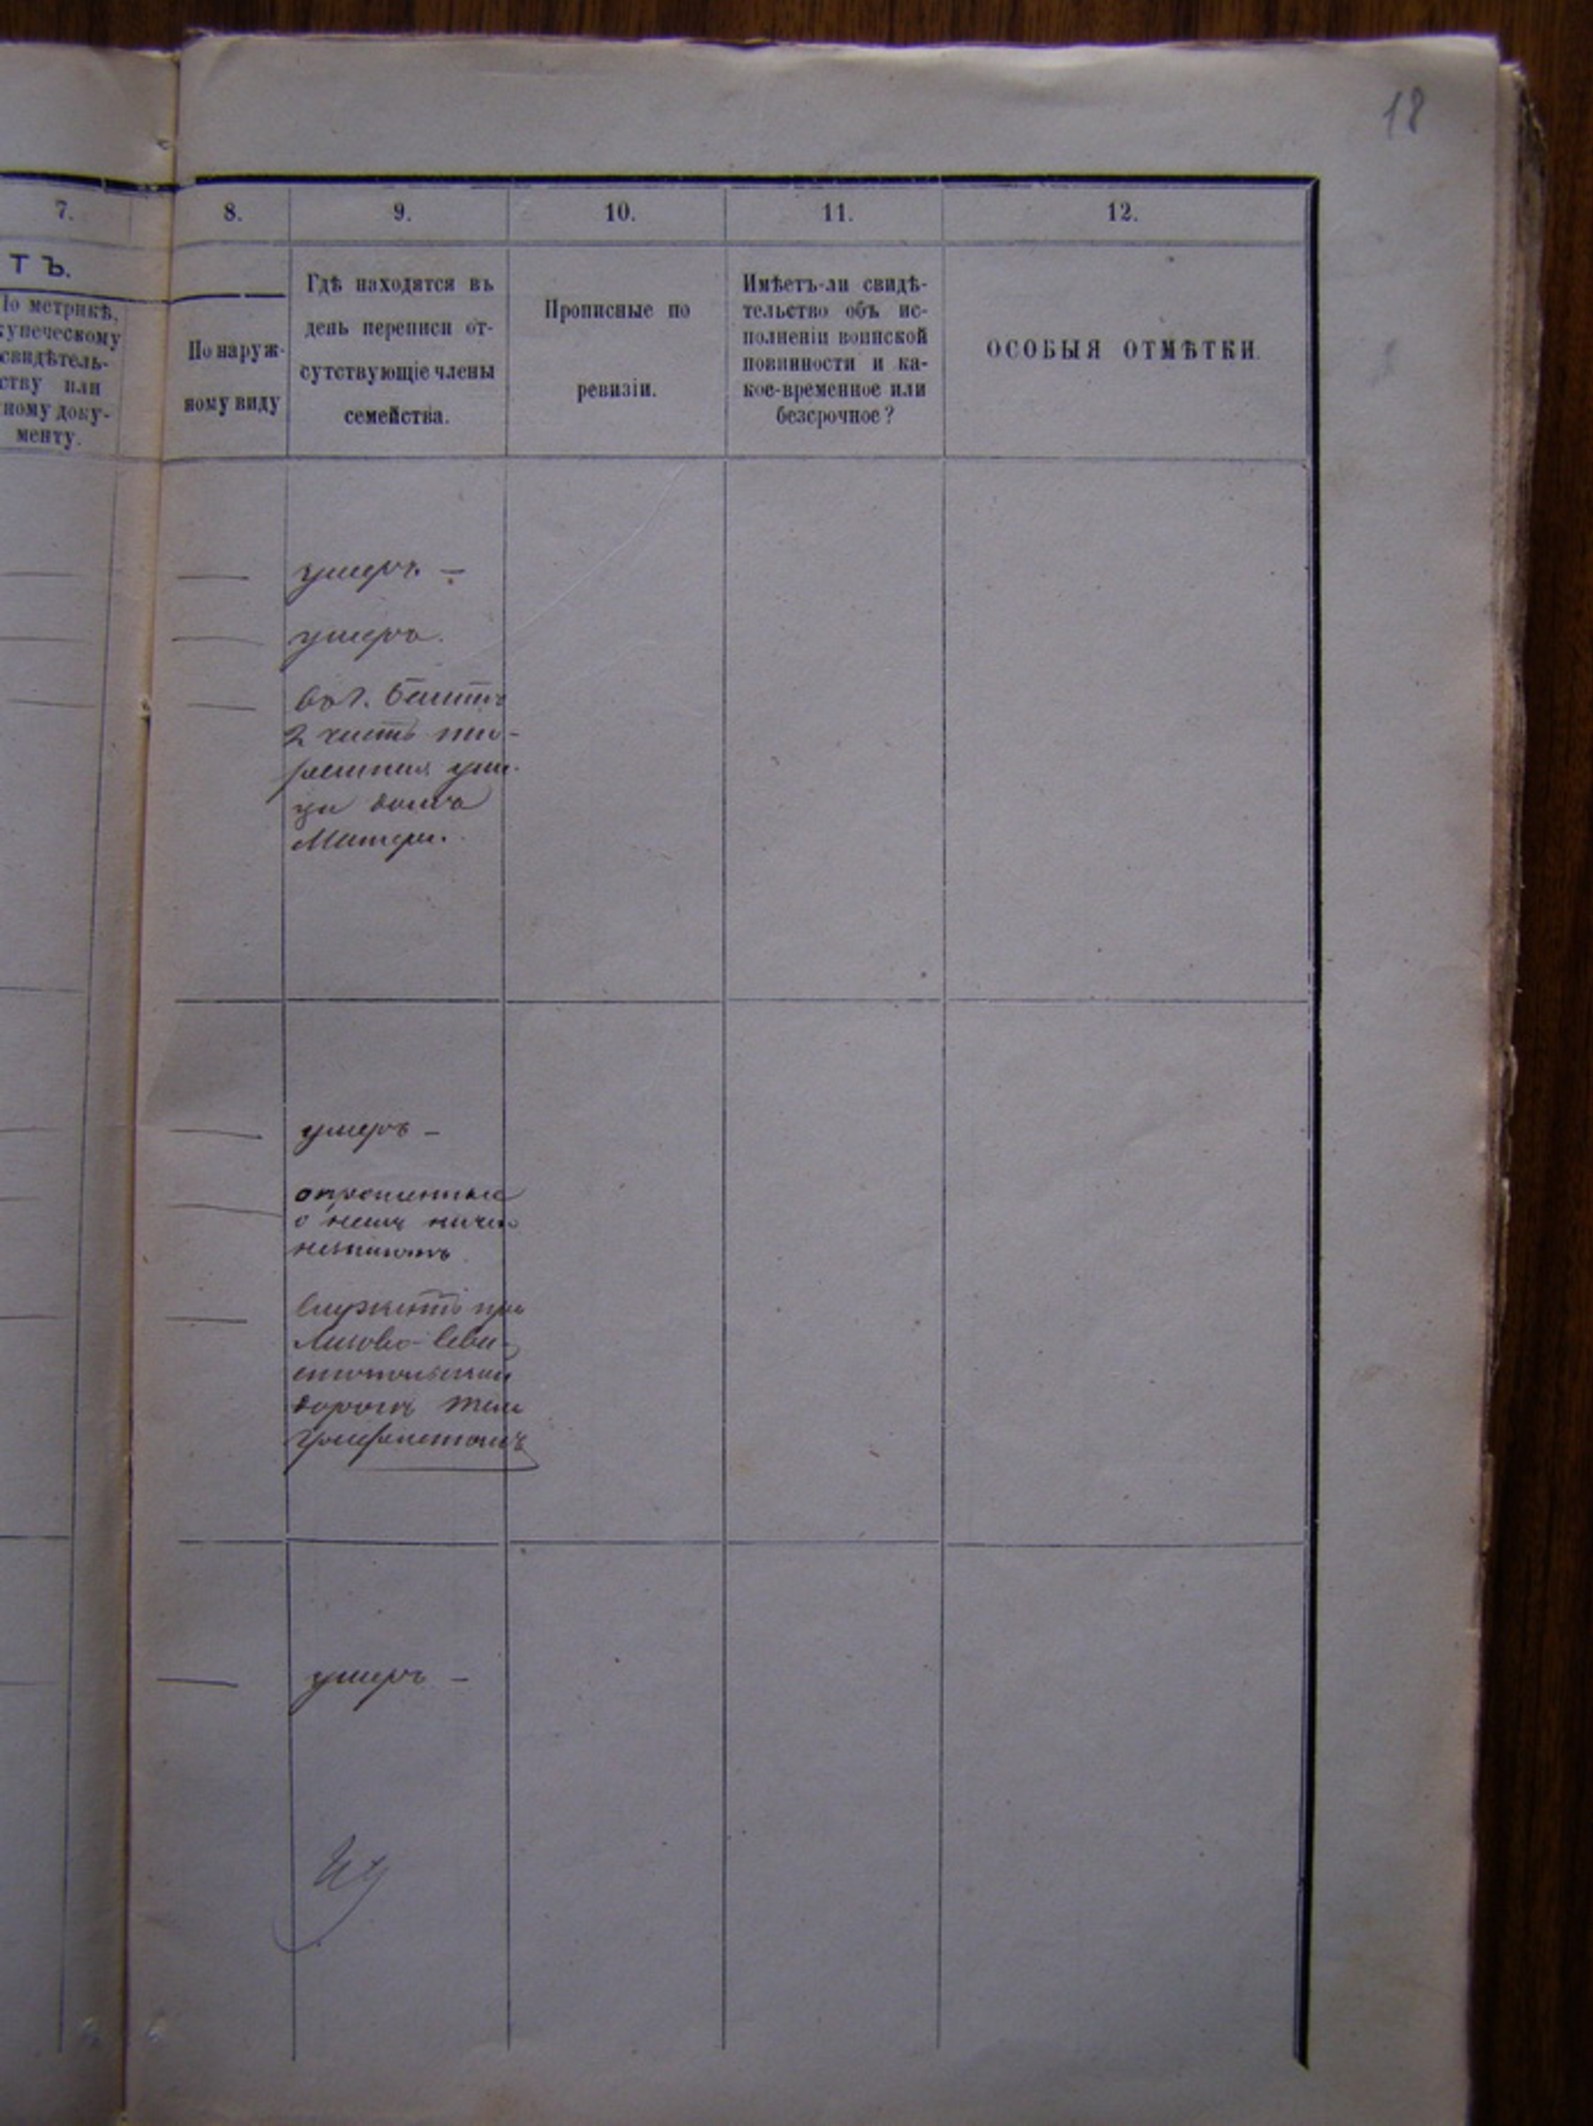 18
7.
8.
9.
10.
11.
12.
ТЪ.
По метрикѣ,
купеческому
свидѣтель-
ству или
иному доку-
менту.
По наруж-
ному виду
Гдѣ находятся въ
день переписи от-
сутствующіе члены
семейства.
Прописные по
ревизіи.
Имѣетъ-ли свидѣ-
тельство объ ис-
полненіи воинской
повинности и ка-
кое-временное или
безсрочное?
ОСОБЫЯ ОТМѢТКИ.
умеръ. —
умеръ.
2 часть
дома
Матери.
умеръ —
опрошенные
о немъ ничего
незнаютъ
Служитъ при
Лозово-Сева-
стопольской
дорогѣ теле
графистомъ
умеръ —